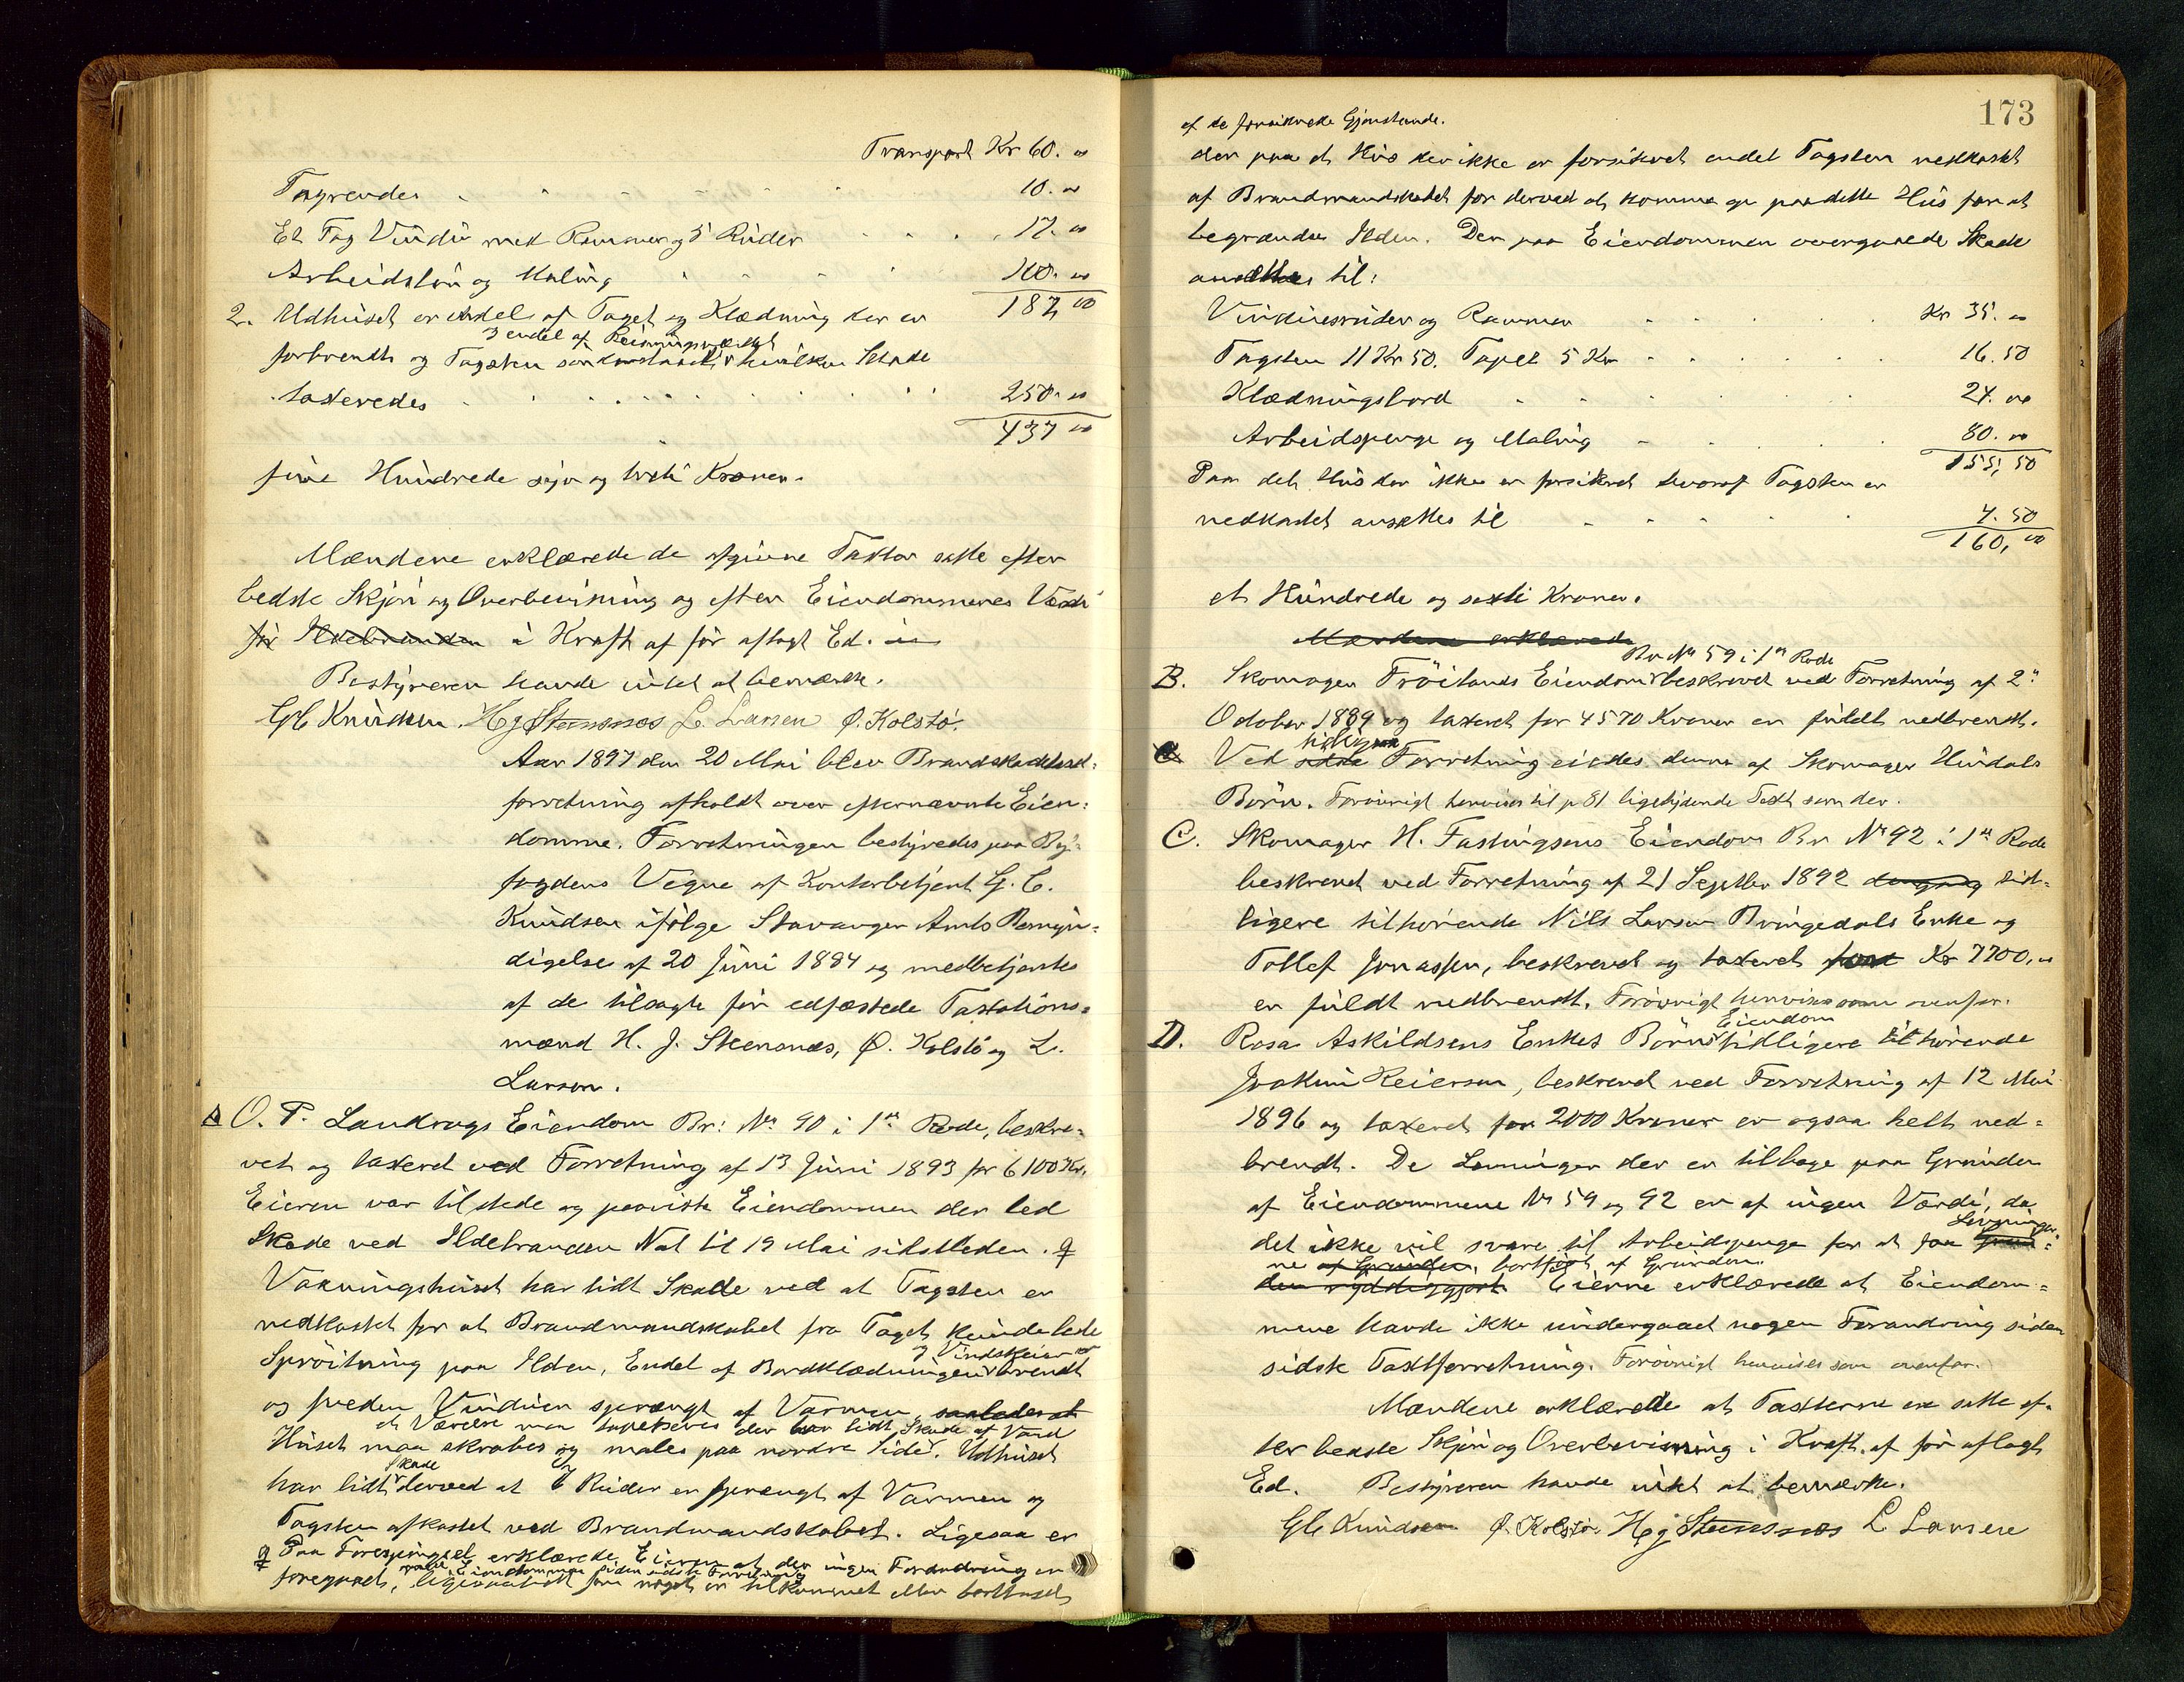 Transport Kr 60. 00
Tagrender 10. 00
Et Fag Vindu med Rammer og 5 Ruder 17. 00
Arbeidsløn og Maling 100. 00
187, 00
2. Udhuset er endel af Taget og Klædning der er
3 endel af Reisningsværket
forbrendt og Tagsten hvilken Skade
taxeredes 250. 00
437 00
fire Hundrede syv og treti Kroner.
Mændene erklærede de afgivne Taxter satte efter
bedste Skjøn og Overbevisning og efter Eiendommenes Værdi
før Ildebranden i Kraft af før aflagt Ed.
Bestyreren havde intet at bemærke.
GC Knudsen. H J Stensnæs L. Larsen Ø. Kolstø.
Aar 1897 den 20 Mai blev Brandskadetaxt-
forretning afholdt over efternævnte Eien-
domme. Forretningen bestyredes paa By-
fogdens Vegne af Kontorbetjent G. C.
Knudsen ifølge Stavanger Amts Bemyn-
digelse af 20 Juni 1884 og medbetjentes
af de tilsagte før edfæstede Taxations-
mænd H. J. Stensnæs, Ø. Kolstø og L.
Larsen.
A O. T. Landraags Eiendom Br: No 90 i 1ste Rode, beskre-
vet og taxeret ved Forretning af 13 Juni 1893 for 6100 Kr.
Eieren var tilstede og paaviste Eiendommen der led
Skade ved Ildebranden Nat til 19 Mai sidstleden.
Vaaningshuset har lidt Skade ved at Tagsten er
nedkastet for at Brandmandskabet fra Taget kunde lede
og Vindskeier
Sprøitning paa Ilden, Endel af Bordklædningen brendt
og sveden Vinduer sprængt af Varmen, saaledes at
et Værelse maa tapetseres der har lidt Skade af Vand
Huset maa skrabes og males paa nordre Side. Udhuset
Skade
har lidt derved at 7 Ruder er sprengt af Varmen og
Tagsten afkastet ved Brandmandskabet. Ligesaa er
Paa Forespørgsel erklærede Eieren at der ingen Forandring er
ved Eiendommen siden sidste Forretning
foregaaet, ligesaalidt som noget er tilkommet eller borttaget
173
af de forsikrede Gjenstande.
der paa et Hus der ikke er forsikret endel Tagsten nedkastet
af Brandmandskabet for derved at komme op paa dette Hus for at
begrændse Ilden. Den paa Eiendommen overgaaede Skade
ansættes til:
Vinduesruder og Rammer Kr 35. 00
Tagsten 11 Kr 50. Tapet 5 Kr 16. 50
Klædningsbord 24. 00
Arbeidspenge og Maling 80. 00
155, 50
Paa det Hus der ikke er forsikret hvoraf Tagsten er
nedkastet ansættes til 4. 50
160, 00
et Hundrede og sexti Kroner.
Mændene erklærede
Br No 59 i 1ste Rode
B. Skomager Frøilands Eiendom beskrevet ved Forretning af 2"
October 1889 og taxeret for 4570 Kroner er fuldt nedbrendt.
tidligere
Ved sidste Forretning eiedes denne af Skomager Hindals
Børn. Forøvrigt henvises til p 81 ligelydende Text som der.
C. Skomager H. Fastingsens Eiendom Br No 92 i 1ste Rode
beskrevet ved Forretning af 21 Septber 1892 tid-
ligere tilhørende Nils Larsen Bringedals Enke og
Tollef Jonassen, beskrevet og taxeret Kr 7700, 00
er fuldt nedbrendt. Forøvrigt henvises som ovenfor.
Eiendom
D. Rasa Askildsens Enkes Børns tidligere tilhørende
Joakim Reiersen, beskrevet ved Forretning af 12 Mai
1896 og taxeret for 2000 Kroner er ogsaa helt ned-
brendt. De Levninger der er tilbage paa Grunden
af Eiendommene No 59 og 92 er af ingen Værdi, da
Levninger-
det ikke vil svare til Arbeidspenge for at faa
ne af Grunden, bortført af Grunden.
den ryddiggjort. Eierne erklærede at Eiendom-
mene havde ikke undergaaet nogen Forandring siden
sidste Taxtforretning. Forøvrigt henvises som ovenfor.
Mændene erklærede at Taxterne ere satte ef-
ter bedste Skjøn og Overbevisning i Kraft af før aflagt
Ed. Bestyreren havde intet at bemærke.
GC Knudsen Ø. Kolstø. H J Stensnæs L Larsen